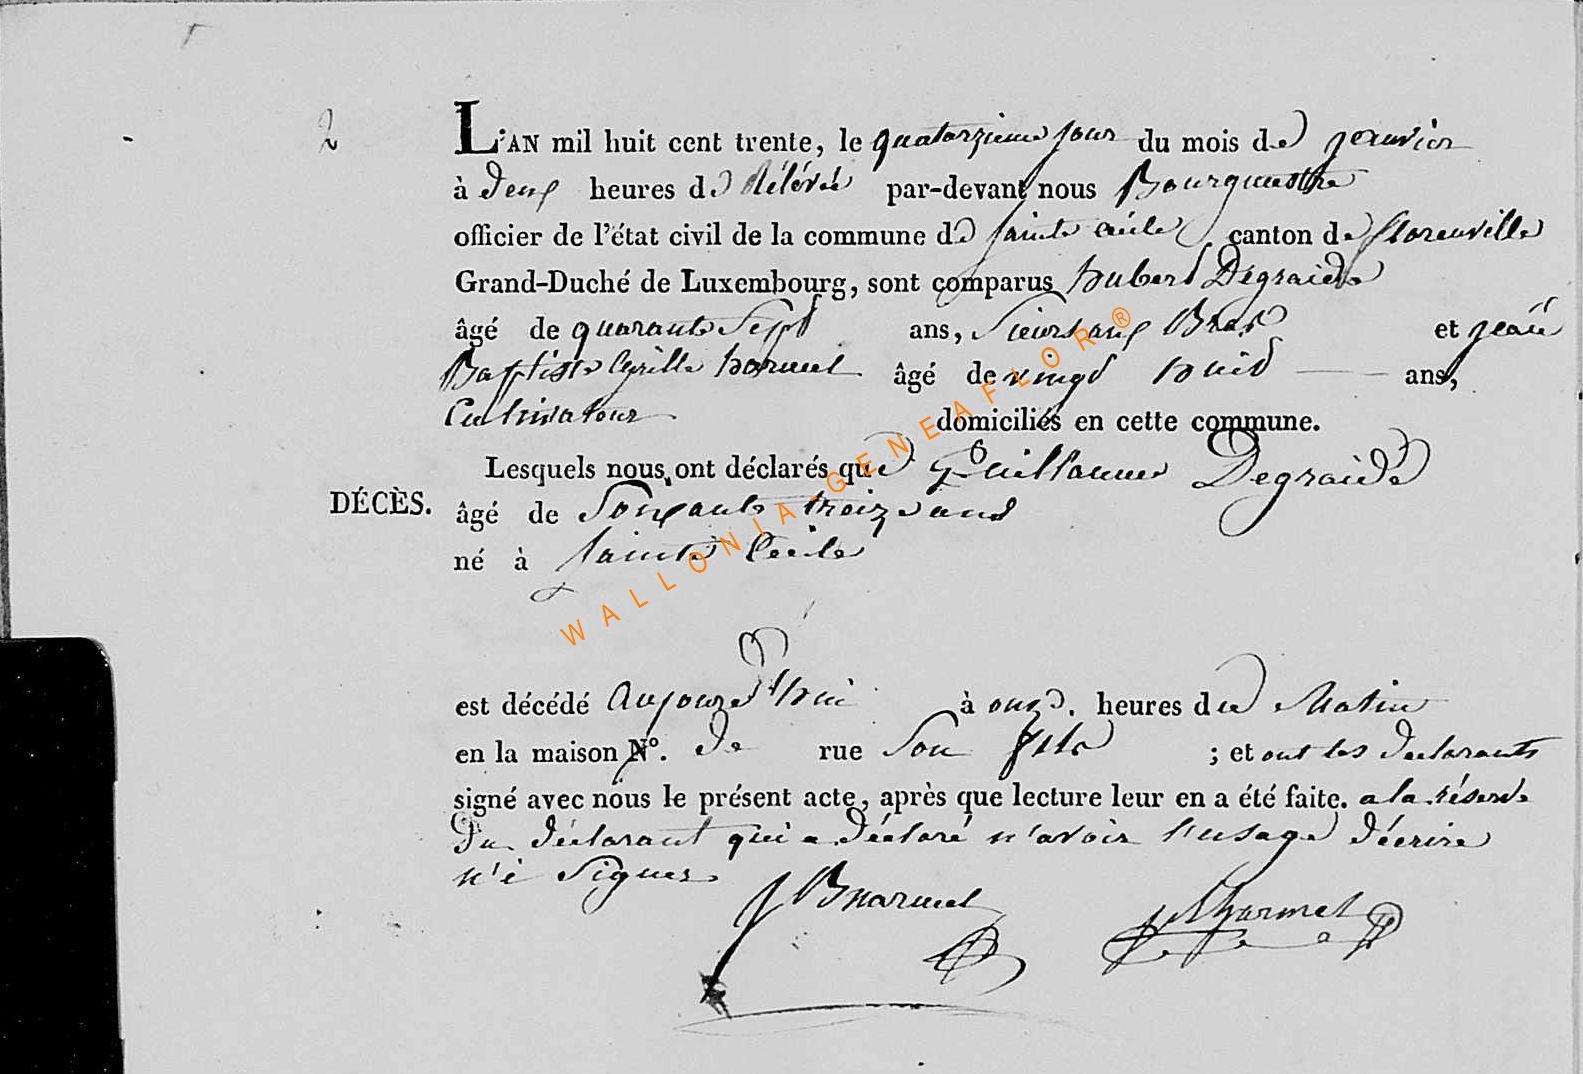 2
L'AN mil huit cent trente, le quatorzieme jour du mois de jenuvier
à deux heures de Rélévée par-devant nous Bourguesttre
officier de l'état civil de la commune de Sainte cecile canton de florenville
Grand-Duché de Luxembourg, sont comparus hubert Degraide
âgé de quarante Sept ans, Scieurs aux Bras et jean
Baptiste Cyrille harmel âgé de vingt huit ans,
Cultivateur domiciliés en cette commune.
Lesquels nous ont déclarés que Guillaume Degraide
DÉCÈS. âgé de Soixante treize ans
né à Sainte Cecile
est décédé Aujourd'hui à onze heures du Matin
en la maison N°. de rue Son fils ; et ont les declarants
signé avec nous le présent acte, après que lecture leur en a été faite. a la réserve
Du déclarant qui a déclaré n'avoir l'usage d'écrire
n'i Signer.
J B harmel harmel
WALLONIA-GENEAFLOR®